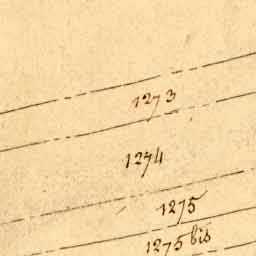 1273
1274
1275
1275 bis